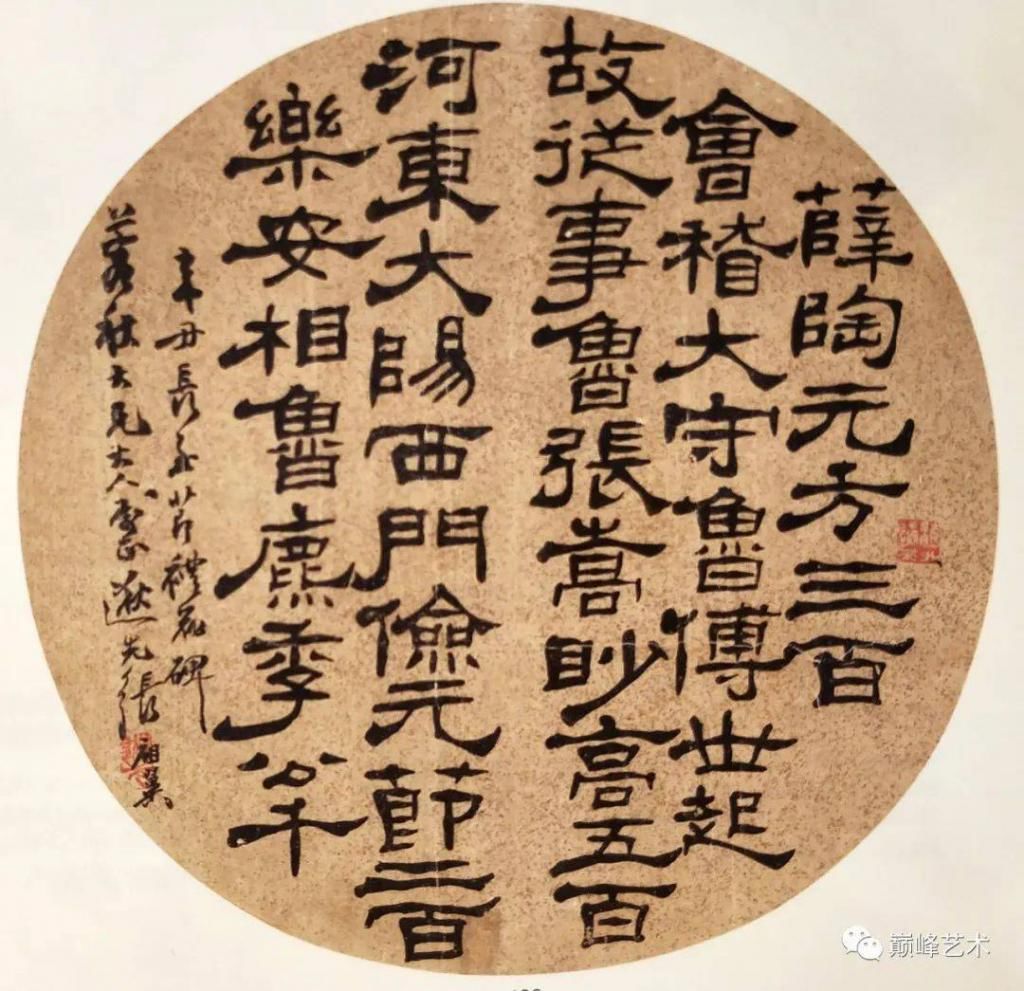 薛陶元方三百
會稽大守魯傅世起
故從事魯張嵩眇高五百
河東大陽西門儉元節二百
樂安相魯麃季公千
辛丑長節禮器碑
秋大兄大人正逖先張祖翼
巅峰艺术